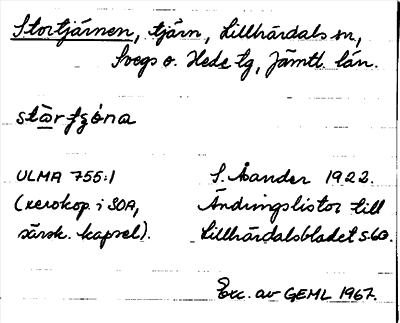 Stortjärnen, tjärn, Lillhärdals sn,
Svegs o. Hede tg, Jämtl. län.
ULMA 755:1
(xerokop. i SOA,
särsk. kapsel).
S. Åsander 1922.
Ändringslistor till
Lillhärdalsbladet s 60.
Exc. av GEML 1967.